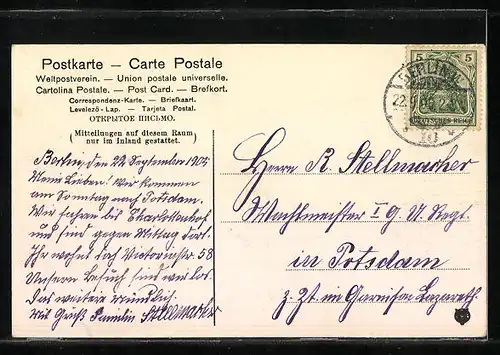 Postkarte — Carte Postale
Weltpostverein. — Union postale universelle.
Cartolina Postale. — Post Card. — Brefkort.
Correspondenz-Karte. — Briefkaart.
Levelező-Lap. — Tarjeta Postal.
ОТКРЫТОЕ ПИСЬМО.
(Mitteilungen auf diesem Raum
nur im Inland gestattet.)
Berlin, den 22 September 1905
Meine Lieben! Wir kommen
am Sonntag nach Potsdam.
Wir fahren bis Charlottenhof
und sind gegen Mittag dort.
Ihr wohnt doch Victoriastr. 58
Unseren Besuch sind
das weitere mündlich.
Mit Gruß Familie Stellmacher
5 5
BERLIN
22. 9. 05
DEUTSCHES REICH
Herrn R. Stellmacher
Wachtmeister I G. U. Regt.
in Potsdam
z. Zt. im Garnison Lazareth.